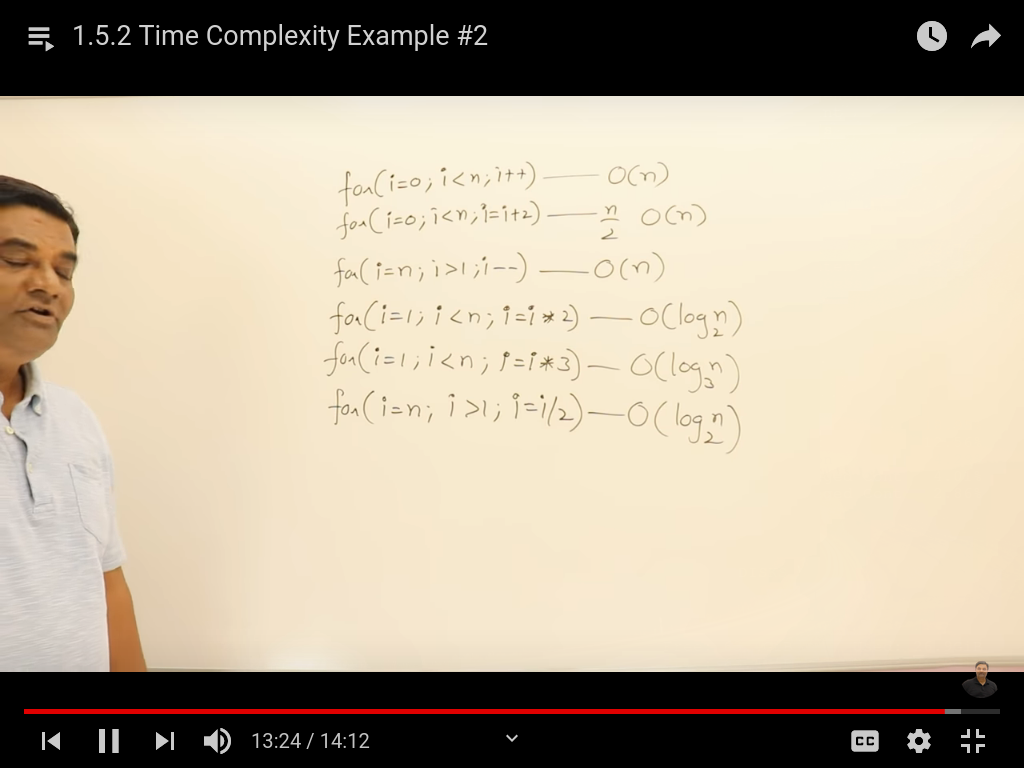 1.5.2 Time Complexity Example #2
for(i=0; i<n; i++) — O(n)
for(i=0; i<n; i=i+2) — n/2 O(n)
for(i=n; i>1; i--) — O(n)
for(i=1; i<n; i=i*2) — O(log₂n)
for(i=1; i<n; i=i*3) — O(log₃n)
for(i=n; i>1; i=i/2) — O(log₂n)
13:24 / 14:12
CC